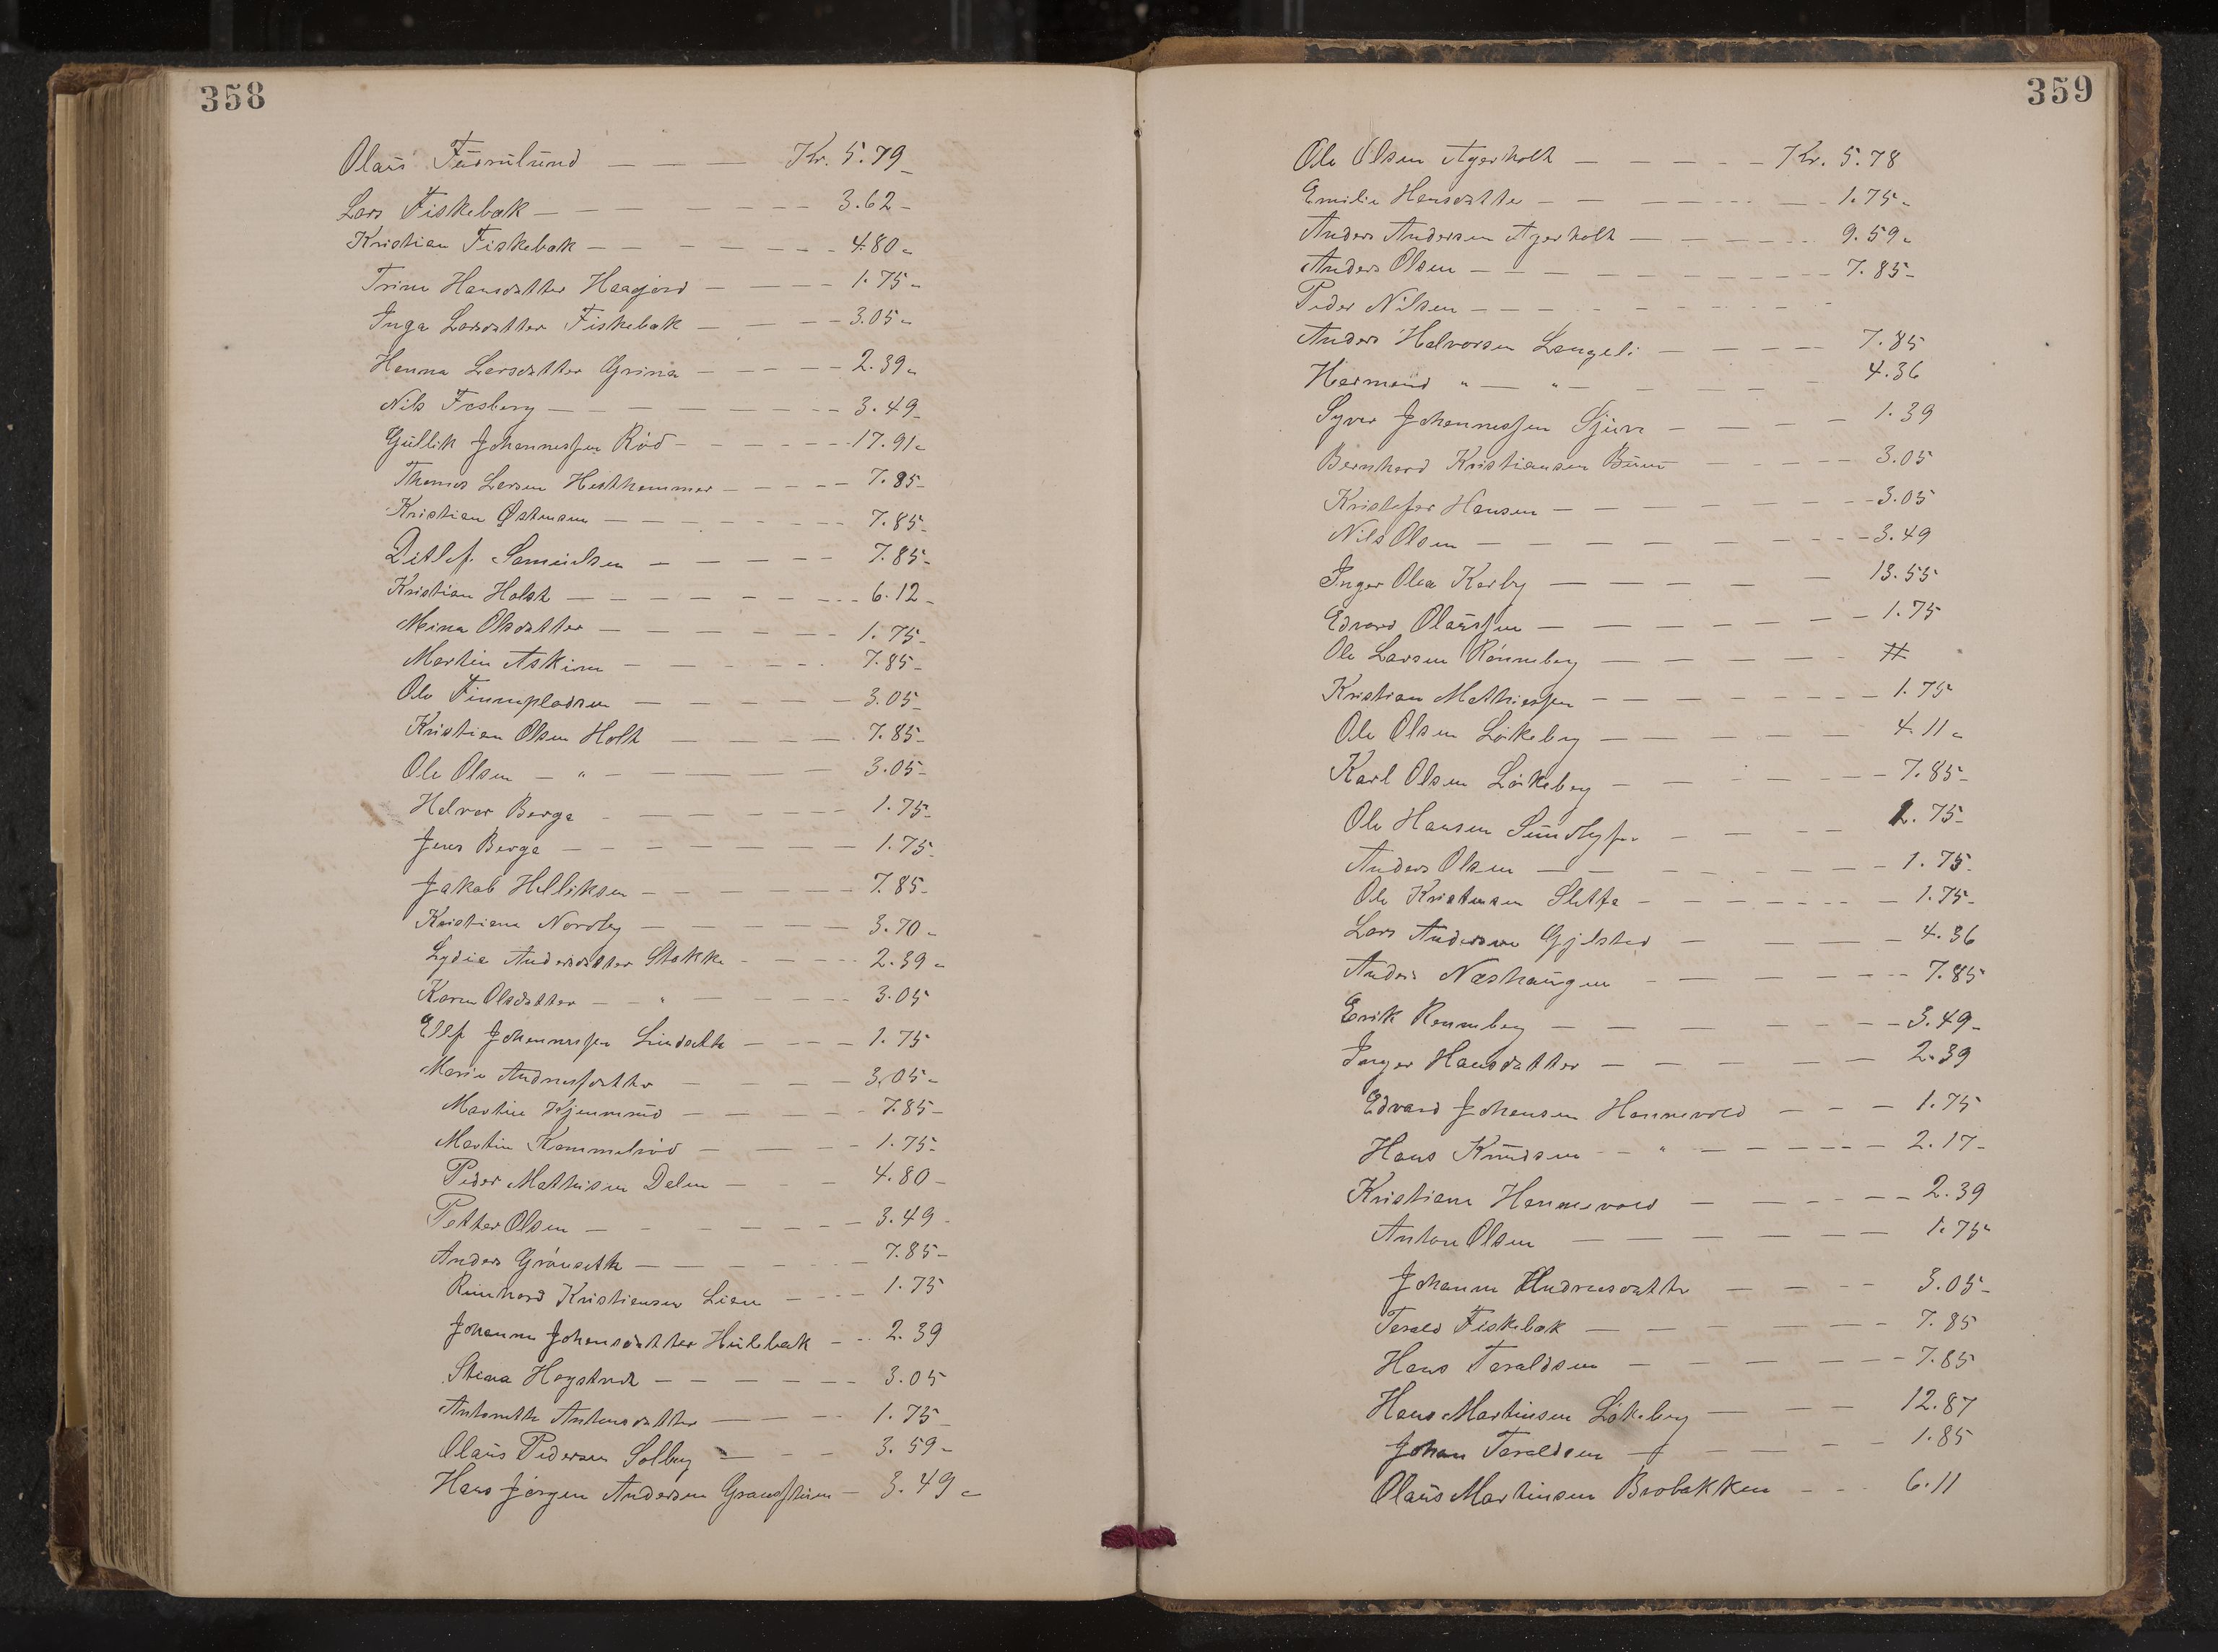 358
Olaüs Füürülund — — — Kr. 5.79
Lars Fiskebæk — — — — — — — 3.62 -
Kristian Fiskebæk — — — — — — - 4.80 -
Trine Hansdatter Haagjord — — — — 1.75 -
Inga Larsdatter Fiskebæk — — — — 3.05 -
Hanna Larsdatter Grina — — — — — 2.39 -
Nils Fosberg — — — — — — — 3.49 -
Güllik Johannessen Röd — — — — — 17.91 -
Thomas Larsen Hesthammer — — — — 7.85 -
Kristian Østensen — — — — — — 7.85 -
Ditlef Samüelsen — — — — — 7.85 -
Kristian Holst — — — — — — — 6.12 -
Mina Olsdatter — — — — — — 1.75 -
Martin Askim — — — — — 7.85 -
Ole Finnepladsen — — — — — 3.05 -
Kristian Olsen Holt — — — — — 7.85 -
Ole Olsen — " — — — — — 3.05 -
Halvor Berge — — — — — — 1.75 -
Jens Berge — — — — — — — 1.75 -
Jakob Helliksen — — — — — — 7.85 -
Kristiane Nordby — — — — — — 3.70 -
Lydia Andersdatter Stokke — — — — 2.39 -
Karen Olsdatter — — " — — — — 3.05
Ellef Johannessen Lindseth — — — — 1.75
Marie Andreasdatter — — — — — 3.05 -
Martin Kjemmüd — — — — — 7.85 -
Martin Kammelröd — — — — — 1.75 -
Peder Mathisen Dalen — — — 4.80 -
Petter Olsen — — — — — — — 3.49 -
Anders Grönseth — — — — — — 7.85 -
Reinhard Kristiansen Lien — — — 1.75
Johanne Johansdatter Hülebæk — — 2.39
Stina Høgstvedt — — — — — — 3.05
Antonette Antonsdatter — — — — 1.75
Olaüs Pedersen Solberg — — — 3.59 -
Hans Jörgen Andersen — 3.49 -
359
Ole Olsen Agerholt — — — — — Kr. 5.78
Emilie Hansdatter — — — — — — 1.75 -
Anders Andersen Agerholt — — — — — 9.59 -
Anders Olsen — — — — — — — — 7.85 -
Peder Nilsen — — — — — — — —
Anders Halvorsen Langeli — — — — 7.85
Herman " — " — — — — — 4.36
Syver Johannessen Sjüve — — — — 1.39
Bernhard Kristiansen Büün — — — — 3.05
Kristofer Hansen — — — — — — — 3.05
Nils Olsen — — — — — — — — 3.49
Inger Olea Karby — — — — — — 13.55
Edvard Olaüssen — — — — — — — 1.75
Ole Larsen Rönneberg — — — — — #
Kristian Mathiessen — — — — — — 1.75
Ole Olsen Lökeberg — — — — — — 4.11 -
Karl Olsen Lökeberg — — — — — — 7.85 -
Ole Hansen Sündbyfos — — — — 2.75 -
Anders Olsen — — — — — — — 1.75 -
Ole Kristensen Sletta — — — — — — 1.75 -
Lars Andersen Gjelsted — — — — — 4.36
Anders Næshaügen — — — — — — 7.85
Erik Rønneberg — — — — — — — 3.49 -
Inger Hansdatter — — — — — — 2.39
Edvard Johansen Hannevold — — — 1.75
Hans Knüdsen — — " — — — — — 2.17 -
Kristiane Hannevold — — — — — 2.39
Anton Olsen — — — — — — — 1.75
Johanne Andreasdatter — — — — 3.05 -
Terald Fiskebæk — — — — — — 7.85
Hans Teraldsen — — — — — — 7.85
Hans Martinsen Lökeberg — — — 12.87
Johan Teraldsen — — — — — 1.85
Olaüs Martinsen Brobakken — — — 6.11